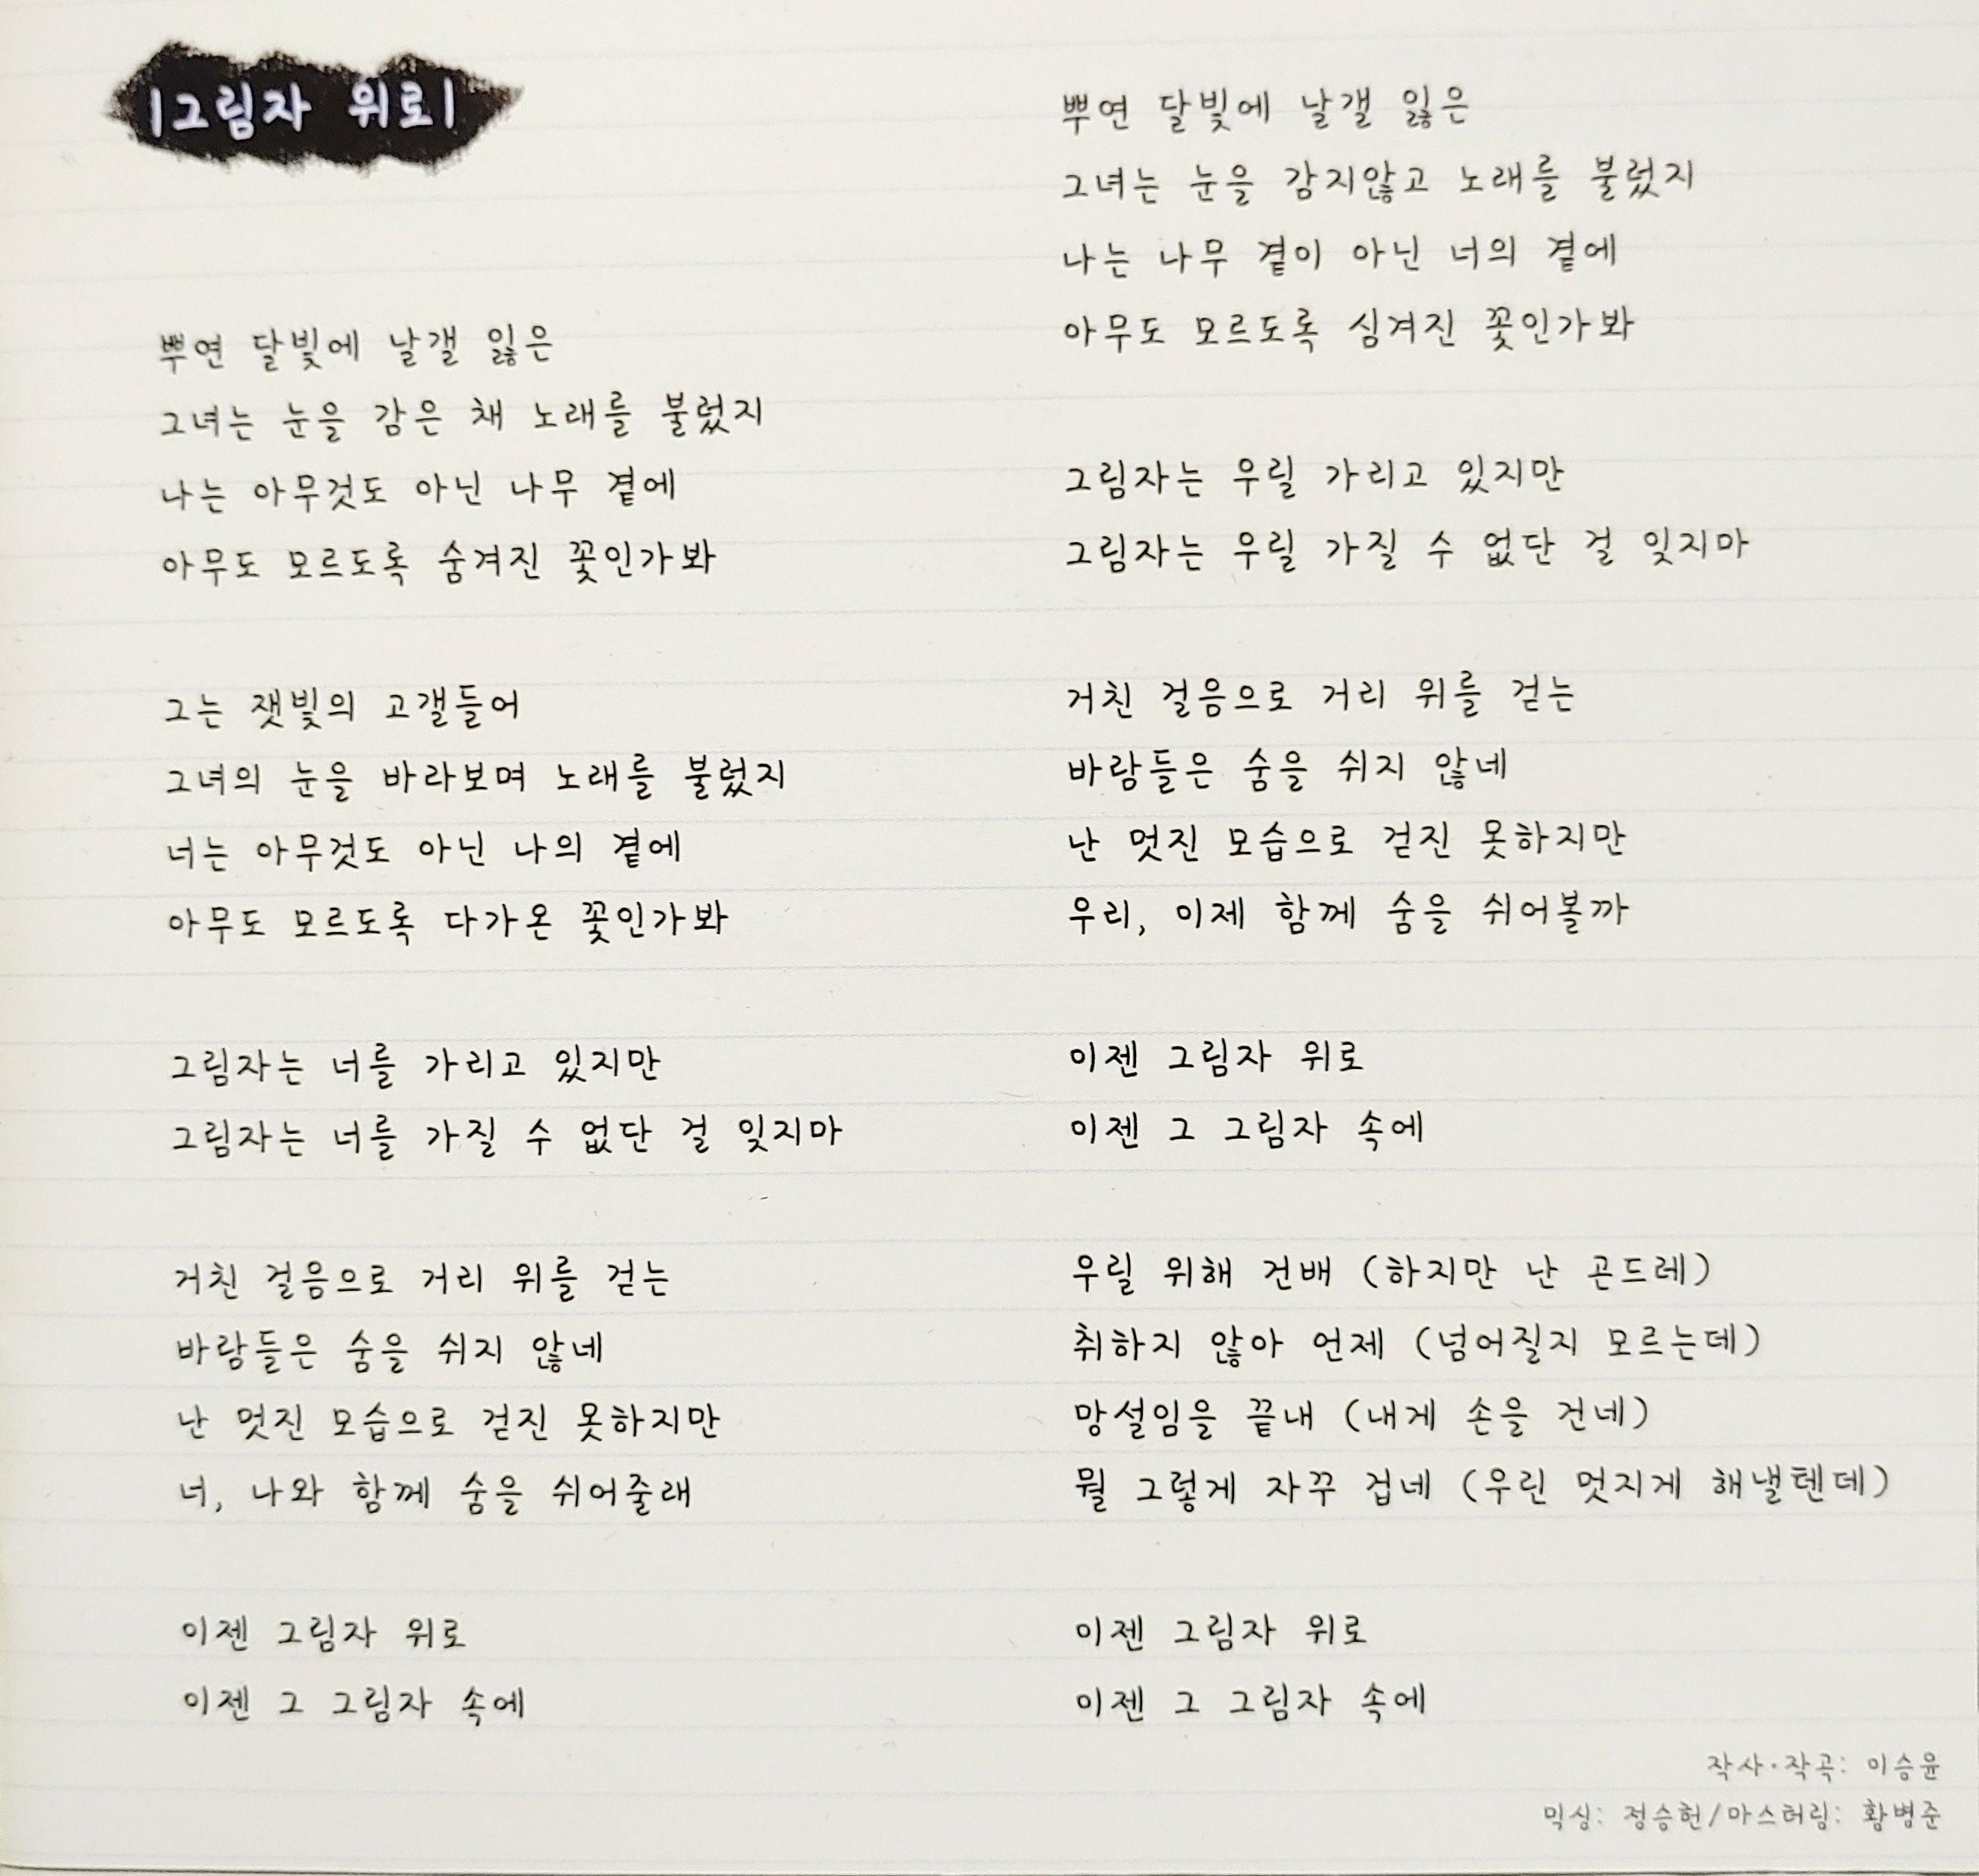 |그림자 위로|
뿌연 달빛에 날갤 잃은
그녀는 눈을 감은 채 노래를 불렀지
나는 아무것도 아닌 나무 곁에
아무도 모르도록 숨겨진 꽃인가봐
그는 잿빛의 고갤들어
그녀의 눈을 바라보며 노래를 불렀지
너는 아무것도 아닌 나의 곁에
아무도 모르도록 다가온 꽃인가봐
그림자는 너를 가리고 있지만
그림자는 너를 가질 수 없단 걸 잊지마
거친 걸음으로 거리 위를 걷는
바람들은 숨을 쉬지 않네
난 멋진 모습으로 걷진 못하지만
너, 나와 함께 숨을 쉬어줄래
이젠 그림자 위로
이젠 그 그림자 속에
뿌연 달빛에 날갤 잃은
그녀는 눈을 감지않고 노래를 불렀지
나는 나무 곁이 아닌 너의 곁에
아무도 모르도록 심겨진 꽃인가봐
그림자는 우릴 가리고 있지만
그림자는 우릴 가질 수 없단 걸 잊지마
거친 걸음으로 거리 위를 걷는
바람들은 숨을 쉬지 않네
난 멋진 모습으로 걷진 못하지만
우리, 이제 함께 숨을 쉬어볼까
이젠 그림자 위로
이젠 그 그림자 속에
우릴 위해 건배 (하지만 난 곤드레)
취하지 않아 언제 (넘어질지 모르는데)
망설임을 끝내 (내게 손을 건네)
뭘 그렇게 자꾸 겁네 (우린 멋지게 해낼텐데)
이젠 그림자 위로
이젠 그 그림자 속에
작사·작곡: 이승윤
믹싱: 정승헌/마스터링: 황병준